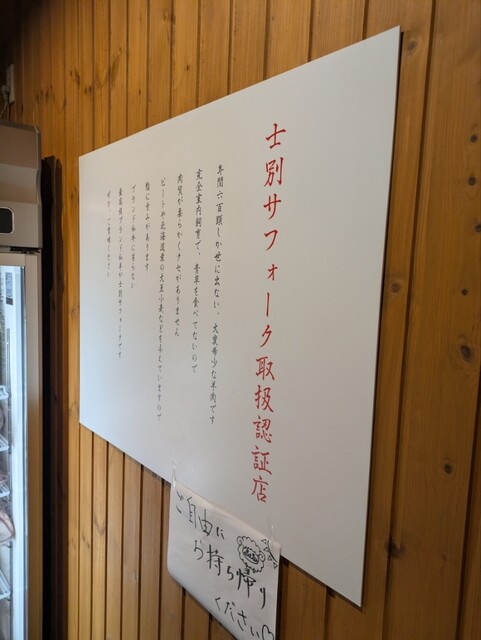 士別サフォーク取扱認証店
年間六百頭しか世に出ない、大変希少な羊肉です
完全室内飼育で、青草を食べてないので
肉質が柔らかくクセがありません
ビートや北海道産の大豆小麦などを与えていますので
脂に甘みがあります
ブランド和牛に劣らない
最高級ブランド羊の士別サフォークです
ぜひ、ご賞味ください
ご自由に
お持ち帰り
ください♡